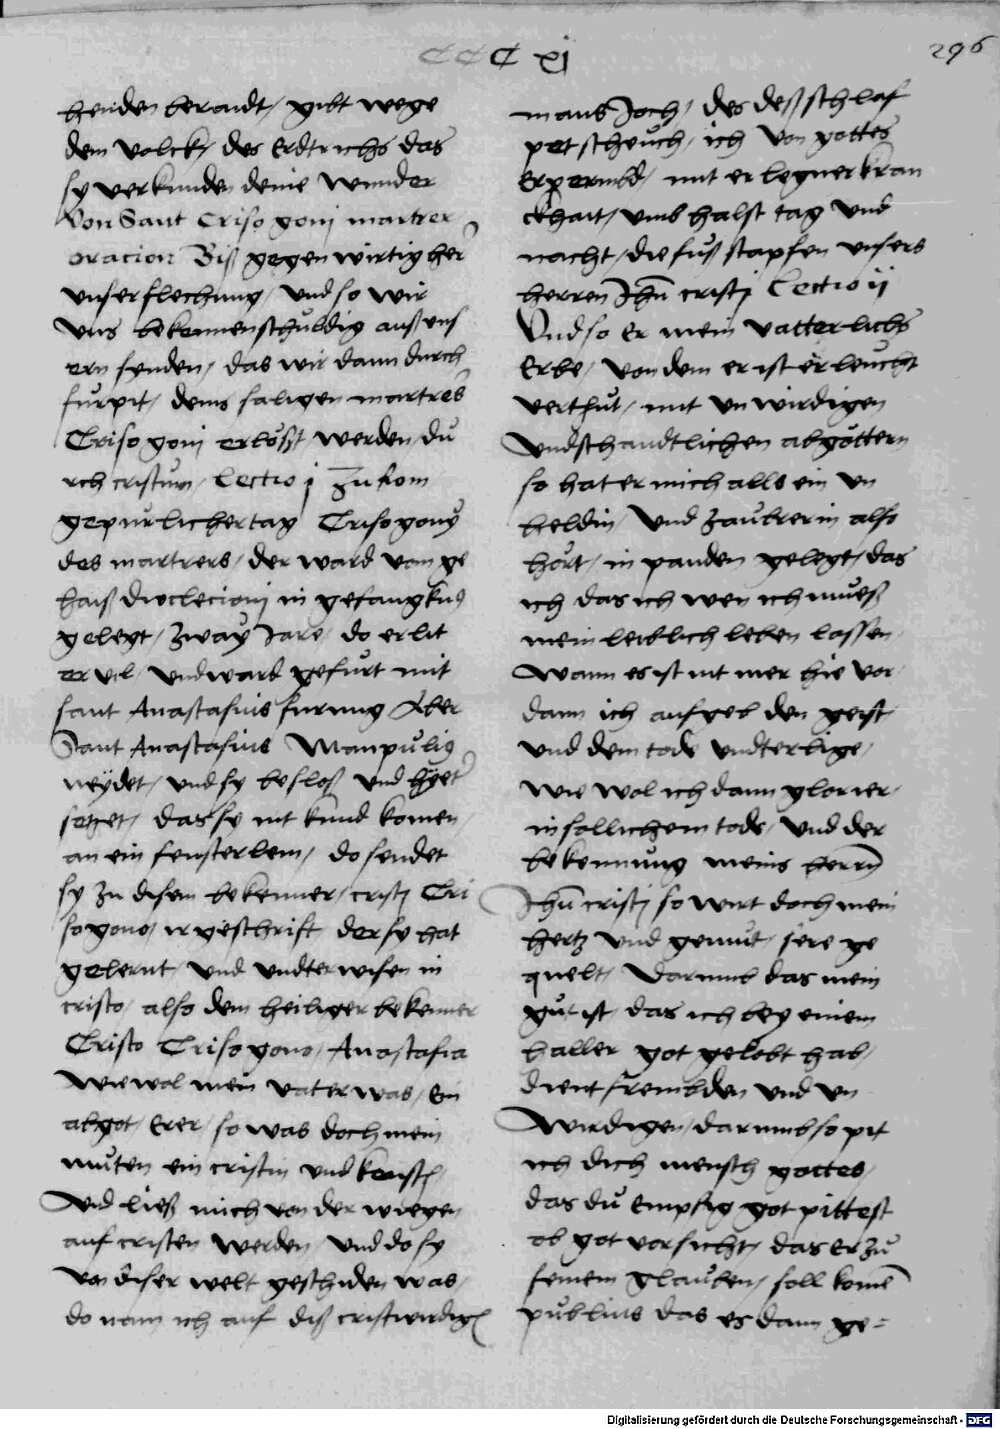 CCC xj
296
henden beraidt / gibt wege
dem volck / des Erdtrichs das
sy verkunden deine wunder
Von Sant Crisogonj martrer
oracion Biß gegenwirtig her
unser flechung / und so wir
uns bekennen schuldig auß uns
ern synden / das wir dann durch
furpit / deins saligen martres
Crisogonj erlößt werden / du
rch cristum / Lectio j Zu kom
gepurlicher tag Crisogony
des martrers / der ward vom ge
haiß Dioclecioni in gefangknus
gelegt / zway Jare / do erlit
er vil / und ward gefurt mit
sant Anastasius furung Aber
Sant Anastasius Man pulius
neydet / und sy besloß und hyeter
setzet / das sy nit kund komen
an ein fensterlein / do sendet
sy zu disem bekenner / cristj Cri
sogono / ir geschrift der sy hat
gelernt / und undterwisen in
cristo / also dem heiliger bekenner
Cristo Crisogono / Anastasia
Wie wol mein vater was / Ein
abgot / Erer / so was doch mein
muten ein cristin und keusch /
Und ließ mich von der wiegen
auf cristen werden / und do sy
von diser welt geschiden was /
do nam ich auf diß cristwirdig
mans Joch / des deß schlaf
petscheuch / ich von gottes
Erpermbd / mit erlegner kran
ckhait / umb halst tag und
nacht / die fußstapfen unsers
herren Jhu cristj Lectio ij
Und so Er mein vatterlichs
Erbe / von dem er ist erleucht
verthut / mit unwirdigen
und schandtlichen abgöttern
so hat er mich alls ein un
heldin / und zaubrerin also
hört / in panden gelegt / das
ich das ich wen ich mueß
mein leiblich leben lassen
Wann es ist nit mer hie vor
dann ich aufgeb den geist
und dem tode undterlige /
wie wol ich dann glorier /
in sollichem tode / und der
bekennung meins herrn
Jhu cristj so wirt doch mein
hertz und gemut / sere ge
quelt / Darumb das mein
gut ist / das ich bey einem
haller got gelobt hab /
dient frembden und un
wirdigen / darumb so pit
ich dich mensch gottes /
das du Empsig got pittest
ob got vorsicht / das er zu
seinem glauben / soll komen
publius das es dann ge=
Digitalisierung gefördert durch die Deutsche Forschungsgemeinschaft - DFG